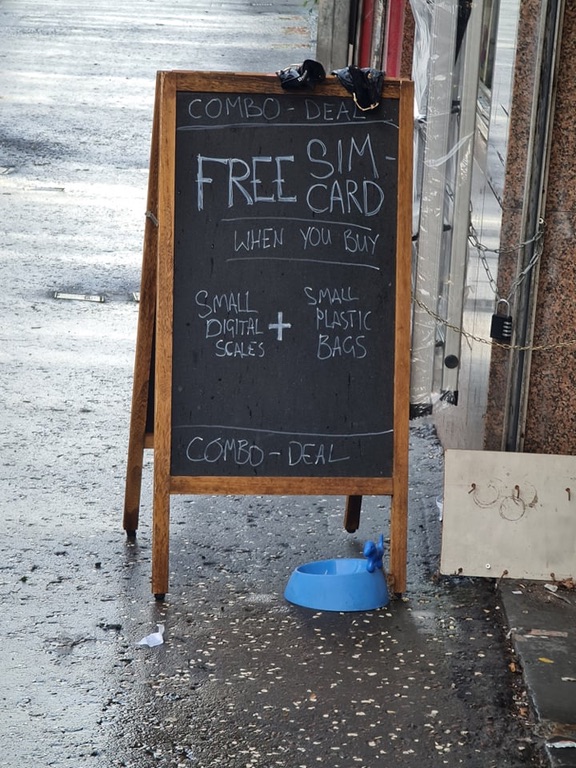 COMBO-DEAL
FREE SIM-
CARD
WHEN YOU BUY
SMALL
DIGITAL
SCALES
+
SMALL
PLASTIC
BAGS
COMBO-DEAL